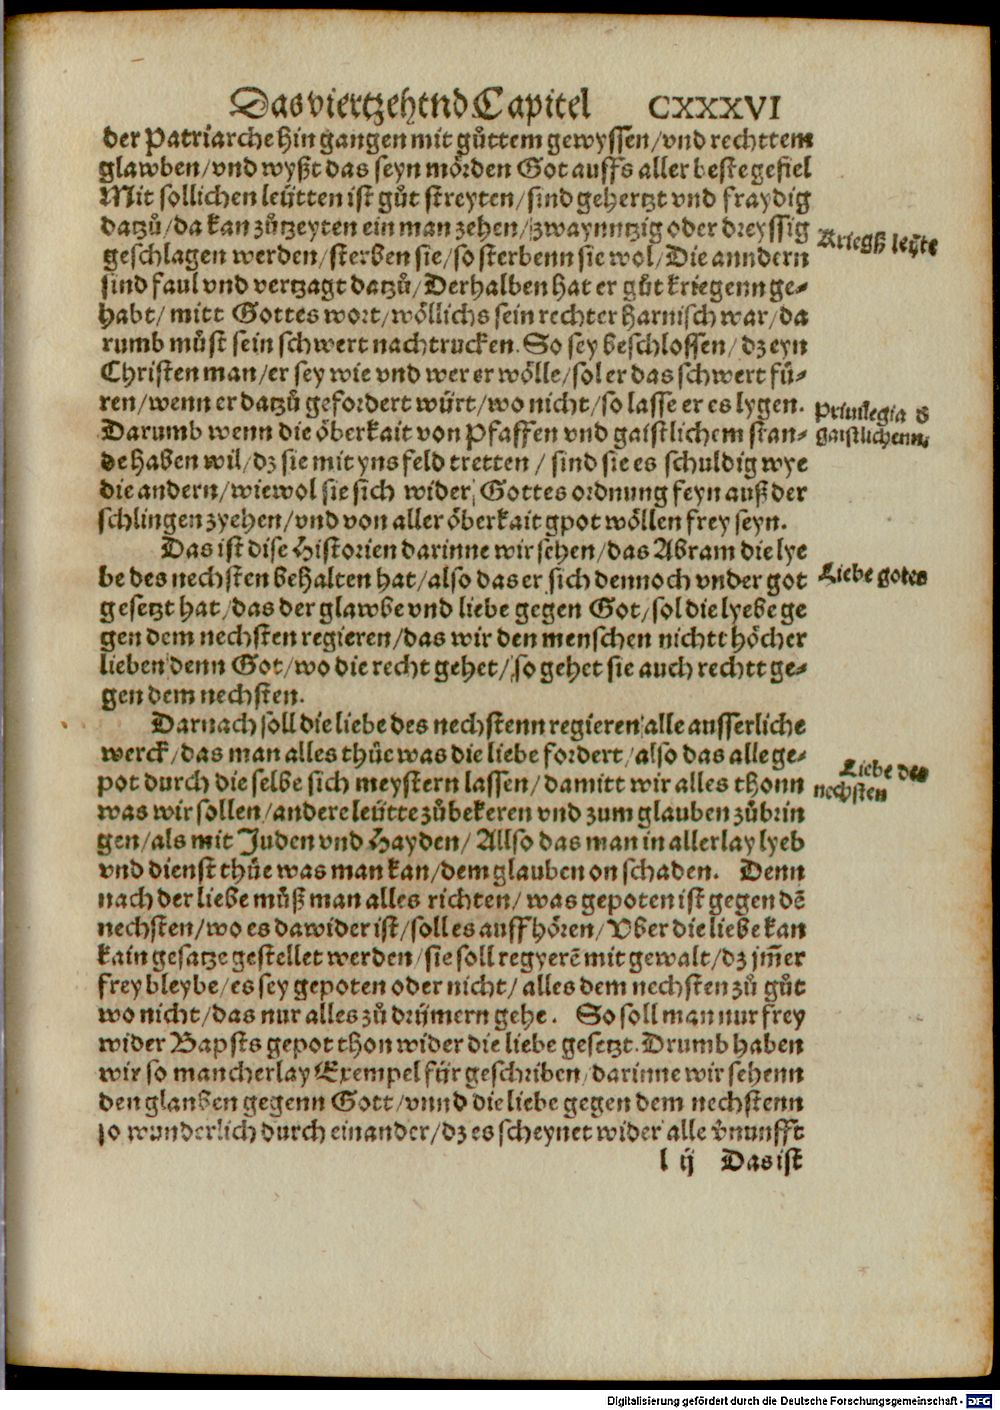 Das viertzehend Capitel CXXXVI
der Patriarche hin gangen mit gůttem gewyssen/vnd rechttem
glawben/vnd wyßt das seyn mörden Got auffs aller beste gefiel
Mit sollichen leütten ist gůt streyten/sind gehertzt vnd fraydig
datzů/da kan zůtzeyten ein man zehen/zwayuntzig oder dreyssig
Kriegß leÿte
geschlagen werden/sterben sie/so sterbenn sie wol/Die anndern
sind faul vnd vertzagt datzů/Derhalben hat er gůt kriegenn ge-
habt/mitt Gottes wort/wöllichs sein rechter harnisch war/da
rumb můst sein schwert nachtrucken. So sey beschlossen/dz eyn
Christen man/er sey wie vnd wer er wölle/sol er das schwert fü-
ren/wenn er datzů gefordert würt/wo nicht/so lasse er es lygen.
Priuilegia d̕
Darumb wenn die öberkait von Pfaffen vnd gaistlichem stan-
gaistlichenn,
de haben wil/dz sie mit yns feld tretten/sind sie es schuldig wye
die andern/wiewol sie sich wider Gottes ordnung feyn auß der
schlingen zyehen/vnd von aller öberkait gpot wöllen frey seyn.
Das ist dise Historien darinne wir sehen/das Abram die lye
be des nechsten behalten hat/also das er sich dennoch vnder got
Liebe gotes
gesetzt hat/das der glawbe vnd liebe gegen Got/sol die lyebe ge
gen dem nechsten regieren/das wir den menschen nichtt höcher
lieben denn Got/wo die recht gehet/so gehet sie auch rechtt ge-
gen dem nechsten.
Darnach soll die liebe des nechstenn regieren alle ausserliche
werck/das man alles thüe was die liebe fordert/also das alle ge-
Liebe des
pot durch die selbe sich meystern lassen/damitt wir alles thonn
nechsten
was wir sollen/andere leütte zůbekeren vnd zum glauben zůbrin
gen/als mit Juden vnd Hayden/Allso das man in allerlay lyeb
vnd dienst thüe was man kan/dem glauben on schaden. Denn
nach der liebe můß man alles richten/was gepoten ist gegen dē
nechsten/wo es dawider ist/soll es auffhören/Vber die liebe kan
kain gesatze gestellet werden/sie soll regyerē mit gewalt/dz jm̄er
frey bleybe/es sey gepoten oder nicht/alles dem nechsten zů gůt
wo nicht/das nur alles zů drümern gehe. So soll man nur frey
wider Bapsts gepot thon wider die liebe gesetzt. Drumb haben
wir so mancherlay Exempel für geschriben/darinne wir sehenn
den glauben gegenn Gott/vnnd die liebe gegen dem nechstenn
so wunderlich durch einander/dz es scheynet wider alle v̄nunfft
l ij Das ist
Digitalisierung gefördert durch die Deutsche Forschungsgemeinschaft - DFG